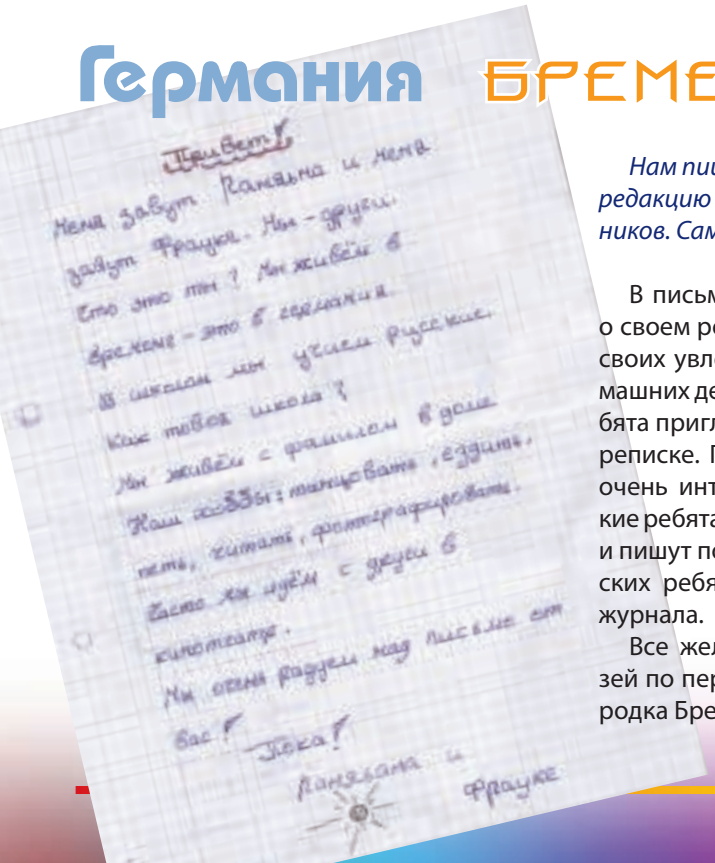 Германия БРЕМЕ
Привет!
Меня завут и меня
завут Фрауке. Мы - други.
Кто это ты? Мы живём в
Времене - это в германия.
В школам мы учием русские.
Как твоая школа?
Мы живём с фамилам в доме
Наш хоббы: танцовать, ездить,
петь, читать, фоттографировать.
Часто мы идём с друси в
кинотеатре.
Мы очень радуем над письме от
вас!
Пока!
и
Фрауке
Нам пиш
редакцию
ников. Сам
В письм
о своем ре
своих увле
машних де
бята пригл
реписке. П
очень инт
кие ребята
и пишут по
ских ребя
журнала.
Все жел
зей по пер
родка Бре